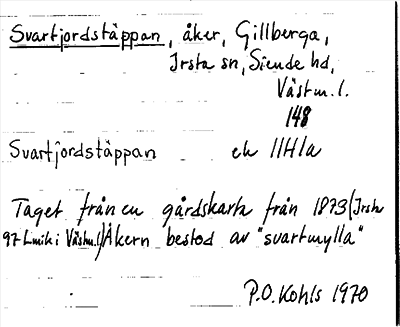 Svartjordstäppan, åker, Gillberga,
Irsta sn, Siende hd,
Västm. l.
148
Svartjordstäppan ek 11H1a
Taget från en gårdskarta från 1873 (Irsta
97 Lmik i Västm. l) Åkern bestod av "svartmylla"
P.O. Kohls 1970